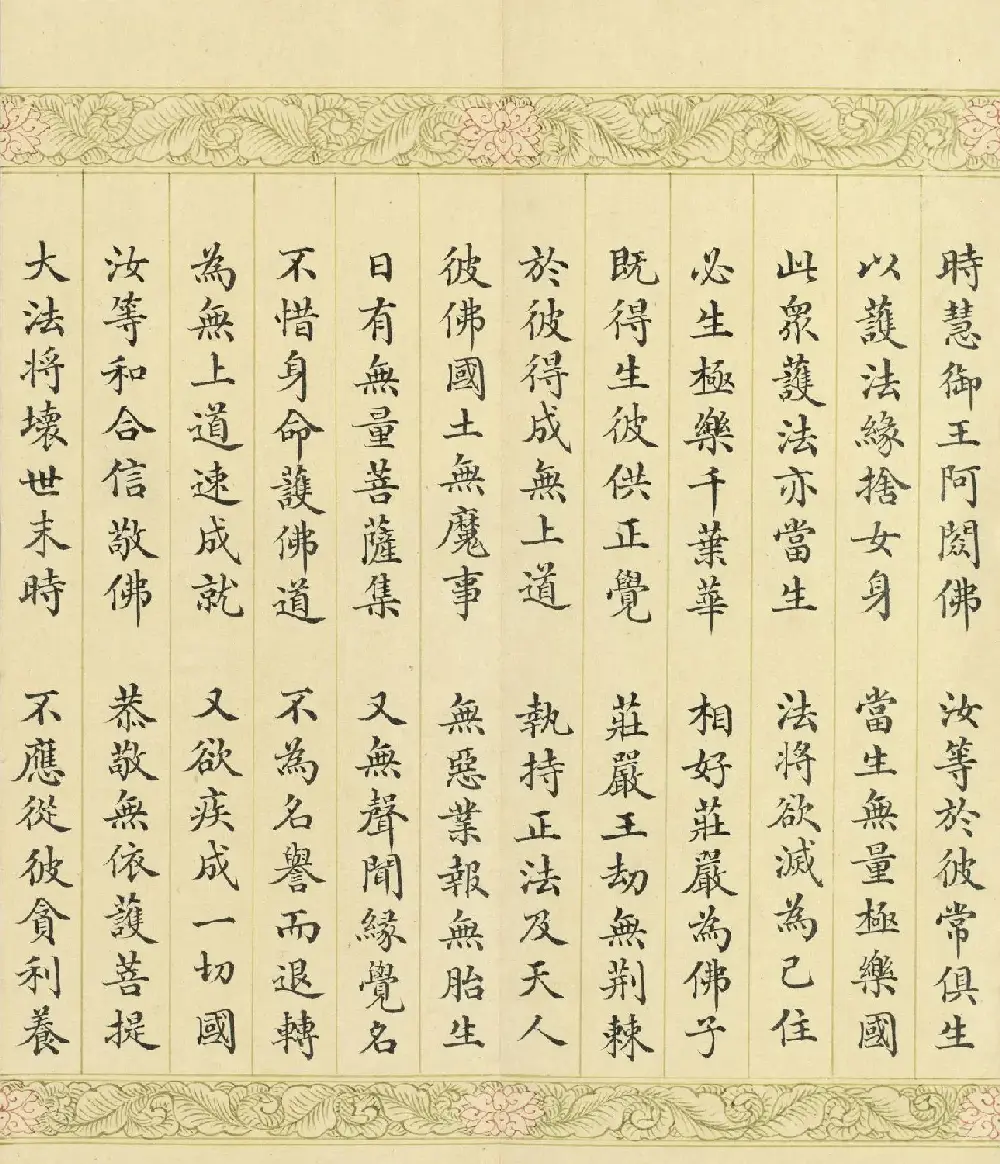 時慧御王阿閦佛 汝等於彼常俱生
以護法緣捨女身 當生無量極樂國
此眾護法亦當生 法將欲滅為已住
必生極樂千葉華 相好莊嚴為佛子
既得生彼供正覺 莊嚴王劫無荆棘
於彼得成無上道 執持正法及天人
彼佛國土無魔事 無惡業報無胎生
日有無量菩薩集 又無聲聞緣覺名
不惜身命護佛道 不為名譽而退轉
為無上道速成就 又欲疾成一切國
汝等和合信敬佛 恭敬無依護菩提
大法将壞世末時 不應從彼貪利養